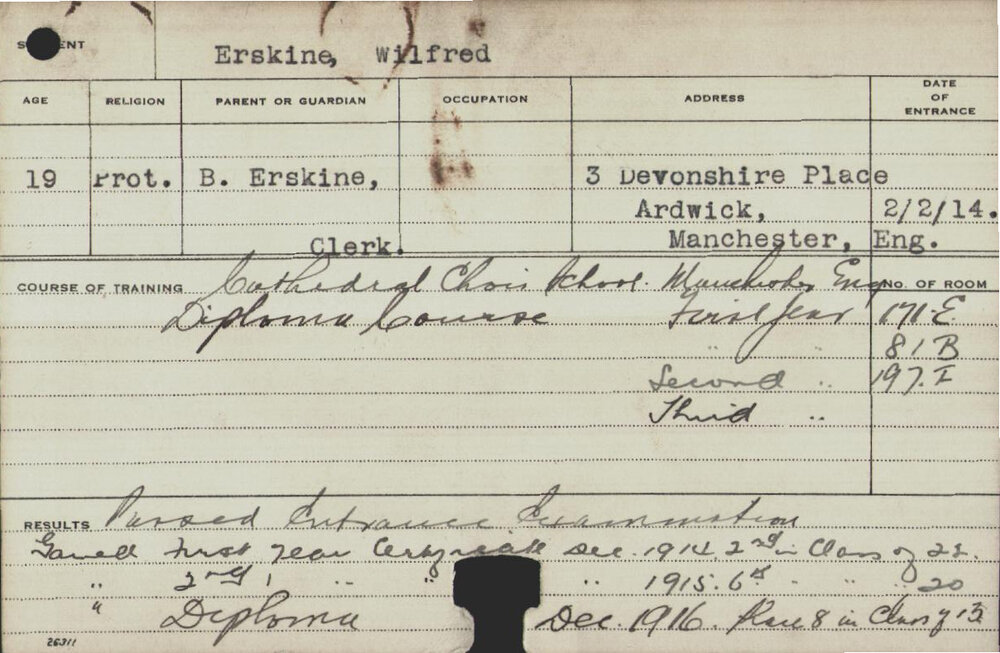 STUDENT Erskine, Wilfred
AGE RELIGION PARENT OR GUARDIAN OCCUPATION ADDRESS DATE OF ENTRANCE
19 Prot. B. Erskine, 3 Devonshire Place
Ardwick, 2/2/14.
Clerk. Manchester, Eng.
COURSE OF TRAINING Cathedral Choir School. Manchester Eng NO. OF ROOM
Diploma Course First Year 171-E
" " 81 B
Second " 197. I
Third "
RESULTS Passed Entrance Examination
Gained First Year Certificate Dec. 1914. 2nd in Class of 22.
" 2nd " " " 1915. 6th " " 20
" Diploma Dec. 1916. Place 8 in Class of 13
26311